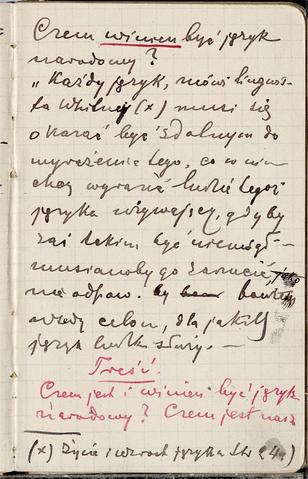 Czem winien być język
narodowy?
"Każdy język, mówi lingwis-
ta Whitney (x) musi się
okazać być zdolnym do
wyrażenia tego, co w nim
chcą wyrazić ludzie tegoż
języka używający, gdyby
zaś takim być niemógł –
musianoby go zarzucić, jako
nie odpow. by
wiedy celom, dla jakich
język ludzki służy. –
Treść.
Czem jest i winien być język
narodowy? Czem jest nasz
(x) Życie i wzrost języka Str 24.)